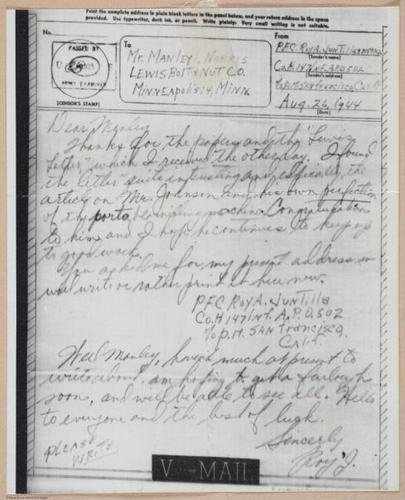 Print the complete address in plain block letters in the panel below, and your return address in the space
provided. Use typewriter, dark ink, or pencil. Write plainly. Very small writing is not suitable.
No.
PASSED BY
U S
ARMY EXAMINER
[CENSOR'S STAMP]
To
Mr. Manley Norris
Lewis Bolt & Nut Co.
Minneapolis 14, Minn.
From
PFC Roy A. Juntilla
(Sender's name)
Co. H 147 Inf. A.P.O 502
(Sender's address)
% P.M. San Francisco Cal.
Aug. 26, 1944
(Date)
Dear Manley
Thanks for the papers and the "Lewis
Letter" which I received the other day. I found
the letter quite interesting and especially the
article on Mr. Johnson and his own perfection
of the machine. Congratulation
to him and I hope he continues to keep up
the good work.
You asked me for my present address so
will write or rather print it here now.
PFC Roy A. Juntilla
Co. H 147 Inf. A.P.O. 502
% P.M. San Francisco,
Calif.
Well Manley, haven't much at present to
write about, am hoping to get a furlough
soon, and will be able to see all. Hello
to everyone and the best of luck.
Sincerely
Roy J.
PLEASE
WRITE
V-MAIL